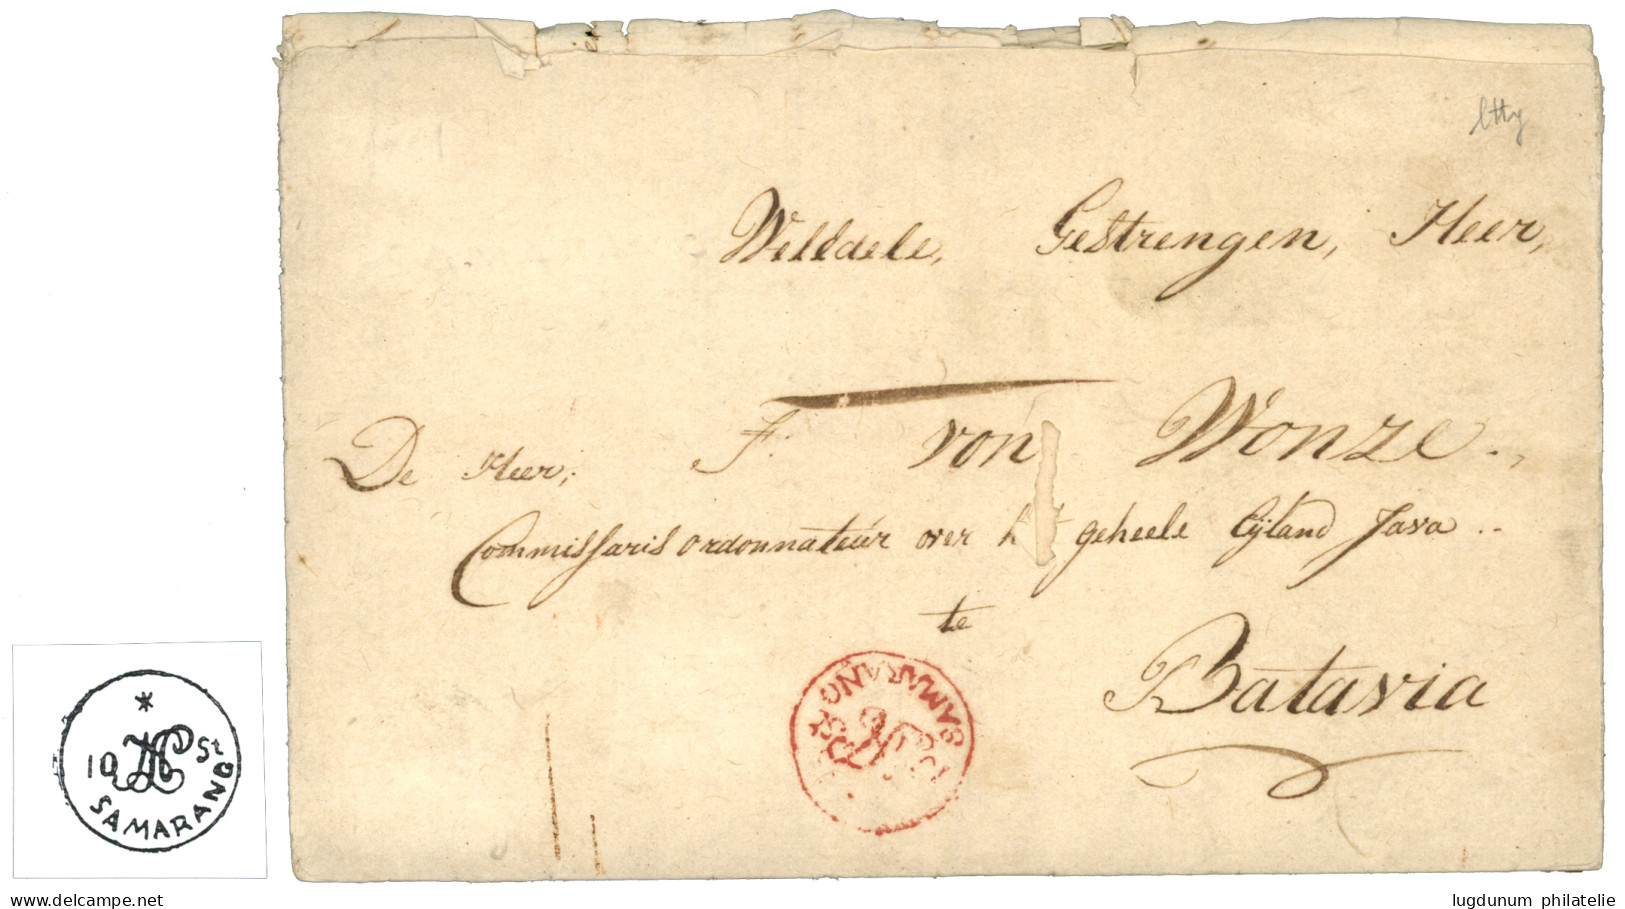 WelEdele, Gestrengen, Heer,
De Heer, F. von Wonze.,
Commissaris ordonnateúr over het geheele Eijland Java..
te
Batavia
SAMARANG
10 St
10 St
SAMARANG
delcampe.net
lugdunum philatelie